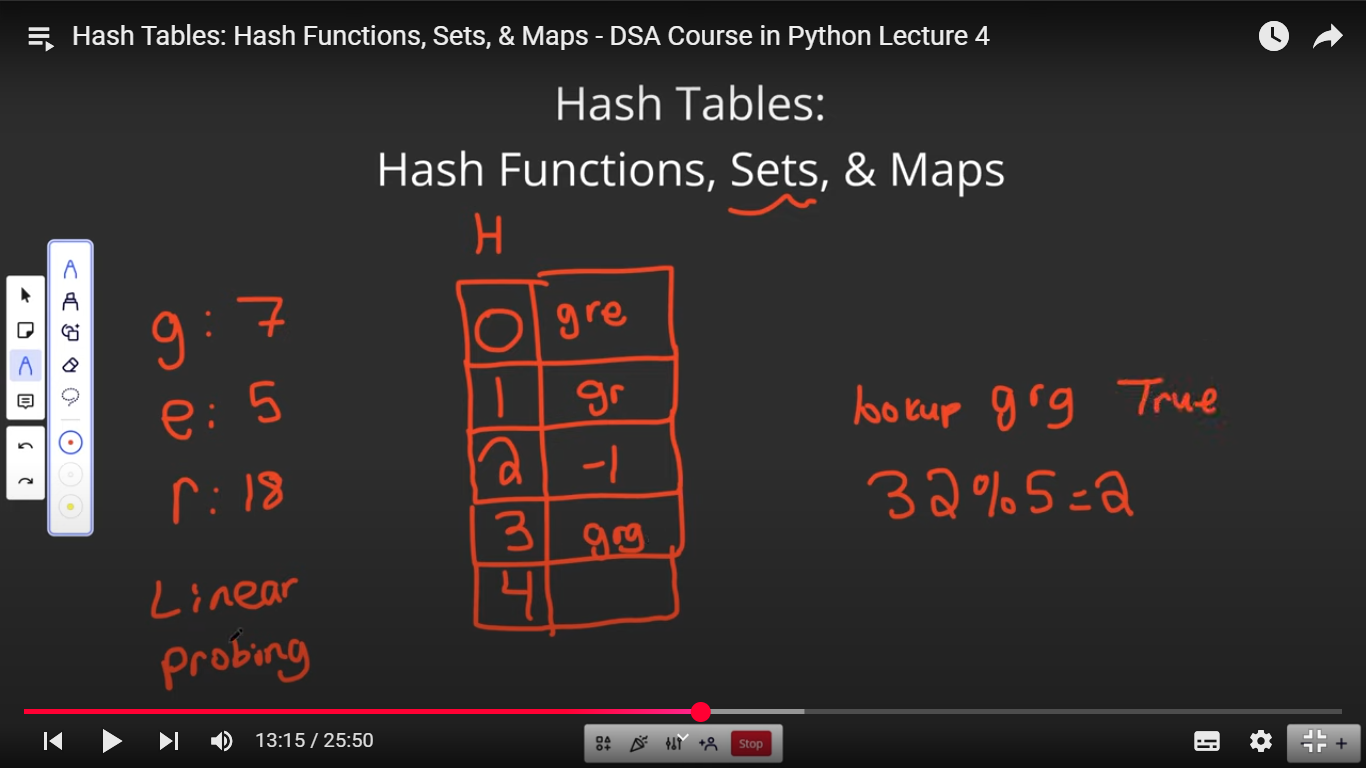 Hash Tables: Hash Functions, Sets, & Maps - DSA Course in Python Lecture 4
Hash Tables:
Hash Functions, Sets, & Maps
H
g: 7
e: 5
r: 18
Linear
probing
0 gre
1 gr
2 -1
3 grg
4
lookup grg True
32%5=2
13:15 / 25:50
Stop